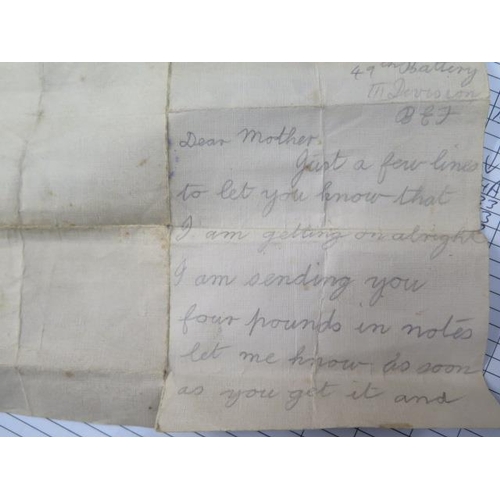 49th Battery
III Division
B E F
Dear Mother.
Just a few lines
to let you know that
I am getting on alright
I am sending you
four pounds in notes
let me know as soon
as you get it and